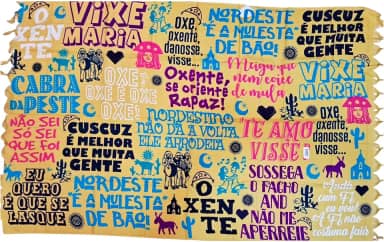 O
XEN
TE.
VIXE
MARIA
OXE,
oxente,
danosse,
visse...
NORDESTE
É A MULESTA
DE BÃO!
CUSCUZ
É MELHOR
QUE MUITA
GENTE
CABRA
DA PESTE
OXE!
OXE É OXE
OXE!
Oxente,
se oriente
Rapaz!
Magra que
nem coice
de mula
VIXE
MARIA
NÃO SEI
SÓ SEI
QUE FOI
ASSIM
CUSCUZ
É MELHOR
QUE MUITA
GENTE
NORDESTINO
NÃO DÁ A VOLTA
ELE ARRODEIA
TE AMO
VISSE
oxe,
oxente,
danosse,
visse...
EU
QUERO
É QUE SE
LASQUE
NORDESTE
É A MULESTA
DE BÃO!
O
XEN
TE.
SOSSEGA
O FACHO
AND
NÃO ME
APERREIE